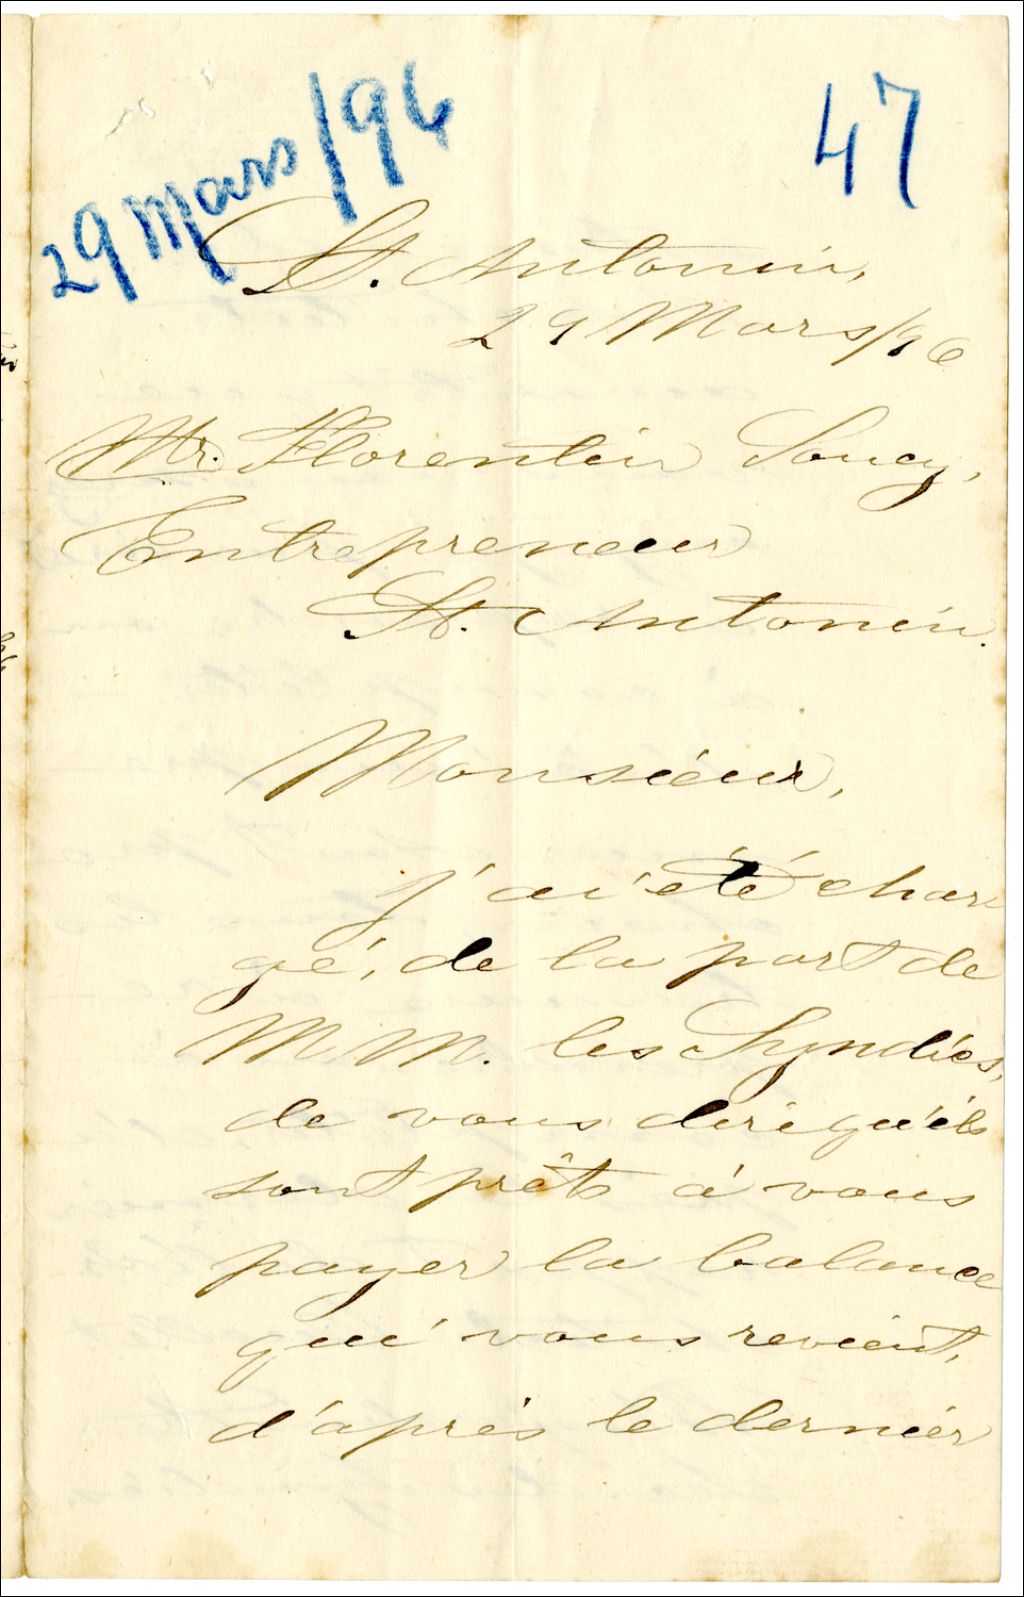 29 mars/96
47
St. Antonin,
29 Mars/96
Mr. Florentin Soucy,
Entrepreneur
St. Antonin.
Monsieur,
j'ai été char
gé, de la part de
MM. les Syndics,
de vous dire qu'ils
sont prêts à vous
payer la balance
qui vous revient,
d'après le dernier